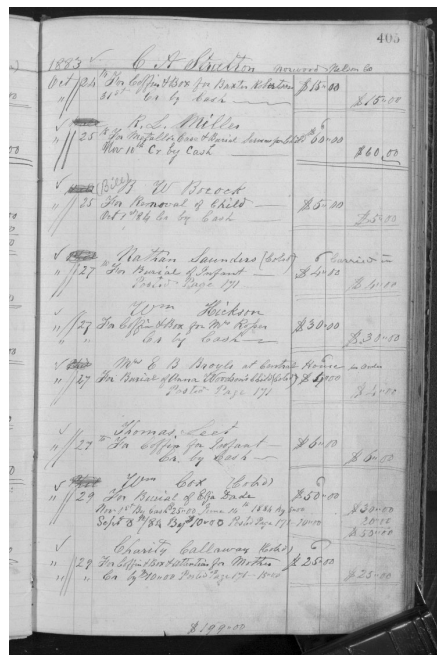 405
1883 C A Stratton Norwood Nelson Co
Oct 24 For Coffin & Box for Baxter $15-00
31st Cr by Cash $15-00
R. L. Miller
25 For Metallic Case & Burial $60-00
Nov 10th Cr by Cash $60.00
(Bill) W Bocock
25 For Removal of Child $5-00
Oct 1st 84 Cr by Cash $5-00
Nathan Saunders (Cold)
27 For Burial of Infant $4-00
Posted Page 171 $4-00
Wm Hickson
27 For Coffin & Box for Mrs Roper $30-00
Cr by Cash $30-00
Mrs E B Broyle at Central House
27 For Burial of Child (Cold)
Posted Page 171 $4-00
Thomas
27 For Coffin for Infant $6-00
Cr. by Cash $6-00
Wm Cox (Cold)
29 For Burial of Eliza Dade $50-00
Nov 1st By Cash 25-00 June 14th 1884 by 5-00 $30-00
Sept 8th/84 By $10-00 Posted Page 171 10-00 20-00
$50-00
Charity Callaway (Cold)
29 For Coffin Box & attention for Mother $25-00
Cr by $10-00 Posted Page 171 15-00 $25-00
$199-00